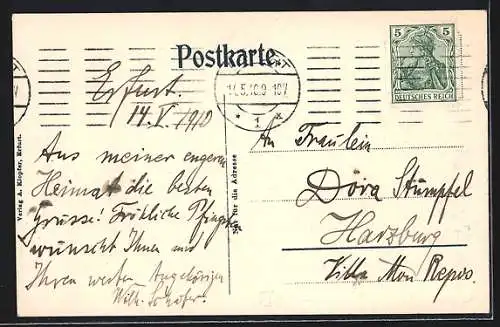 Postkarte
5 5
DEUTSCHES REICH
14.5.10.9-10V
* 1 *
Erfurt.
14. V. 1910
Aus meiner engeren
Heimat die besten
Grüsse! Fröhliche Pfingsten
wünscht Ihnen und
Ihren werten Angehörigen
Wilh.
An Fräulein
Dora Stümpfel
Harzburg
Villa Mon Repos.
Verlag A. Klopfer, Erfurt.
Nur für die Adresse